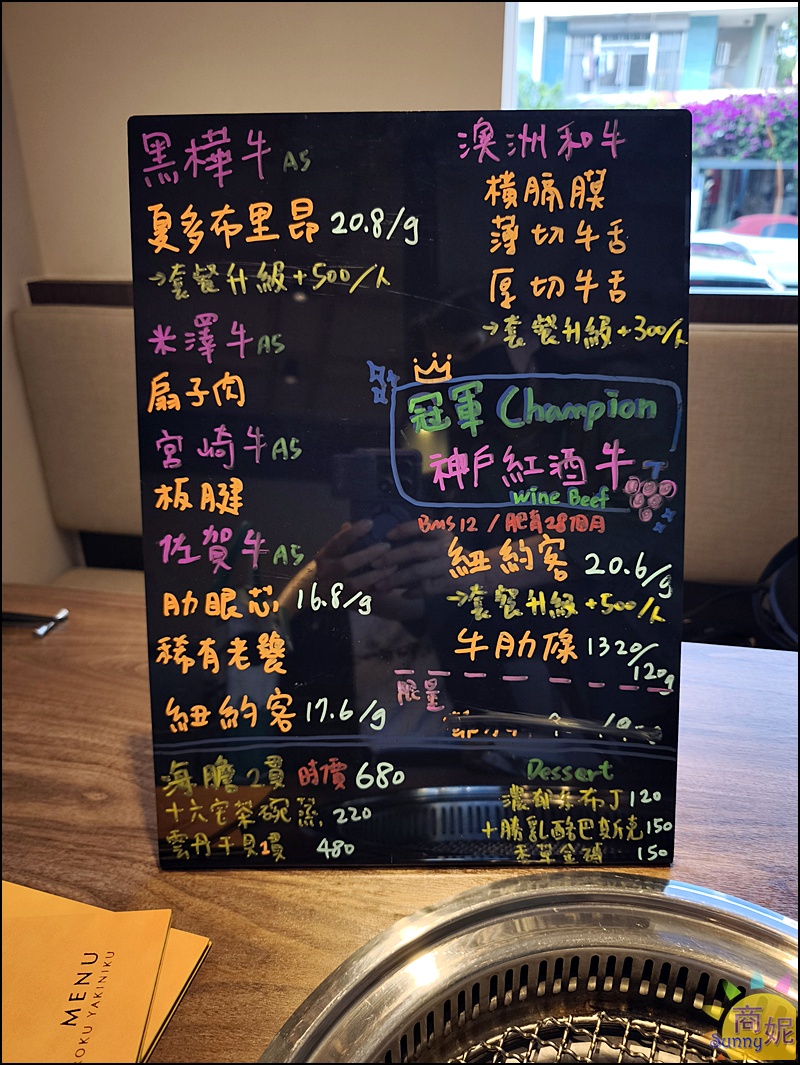 黑樺牛 A5
夏多布里昂 20.8/g
→套餐升級+500/人
米澤牛 A5
扇子肉
宮崎牛 A5
板腱
佐賀牛 A5
肋眼芯 16.8/g
稀有老饕
紐約客 17.6/g
澳洲和牛
橫膈膜
薄切牛舌
厚切牛舌
→套餐升級+300/人
冠軍 Champion
神戶紅酒牛
Wine Beef
BMS12 / 肥育28個月
紐約客 20.6/g
→套餐升級+500/人
牛肋條 1320/120g
限量
海膽2貫 時價 680
+六宝茶碗蒸 220
雲丹干貝1貫 480
Dessert
布丁 120
+腐乳酪巴斯克 150
150
MENU
KOKU YAKINIKU
商妮
Sunny